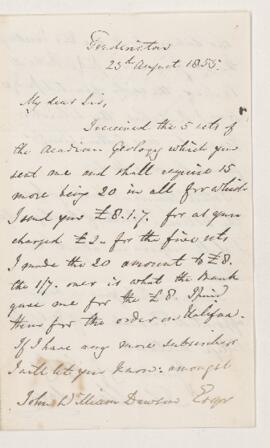 Fredericton
23rd August 1855.
My dear Sir,
I received the 5 sets of
the Acadian Geology which you
sent me and shall require 15
more being 20 in all for which
I send you £8.1.7. for as you
charged £2. for the five sets
I made the 20 amount to £8.
the 1/7. over is what the Bank
gave me for the £8 I paid
them for the order on Halifax.
If I have any more subscribers
I will let you know: amongst
John William Dawson Esqr